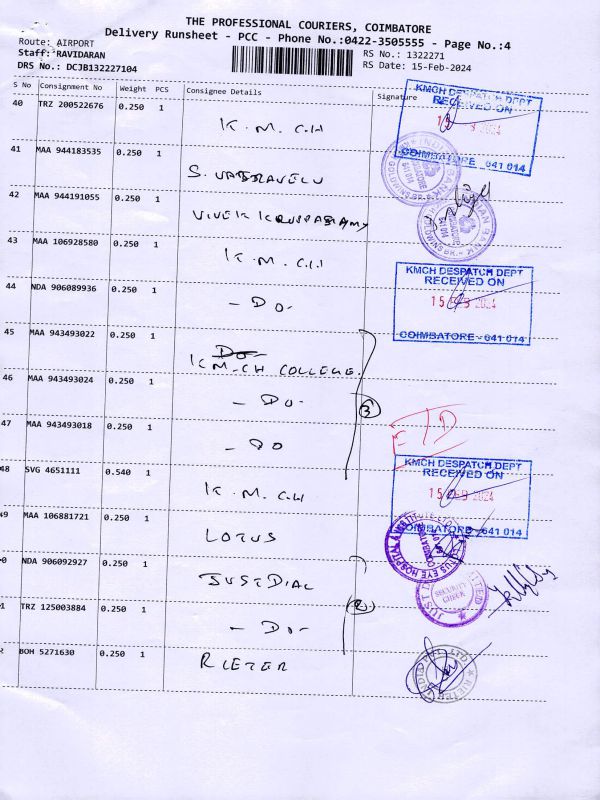 THE PROFESSIONAL COURIERS, COIMBATORE
Delivery Runsheet - PCC - Phone No.:0422-3505555 - Page No.:4
Route: AIRPORT
Staff: RAVIDARAN RS No.: 1322271
DRS No.: DCJB132227104 RS Date: 15-Feb-2024
S No Consignment No Weight PCS Consignee Details Signature
40 TRZ 200522676 0.250 1 K.M.C.H
KMCH DESPATCH DEPT
RECEIVED ON
COIMBATORE - 641 014
41 MAA 944183535 0.250 1
INDIAN BANK
42 MAA 944191055 0.250 1
INDIAN BANK
43 MAA 106928580 0.250 1 K.M.C.H
44 NDA 906089936 0.250 1 - DO -
KMCH DESPATCH DEPT
RECEIVED ON
15 FEB 2024
COIMBATORE - 641 014
45 MAA 943493022 0.250 1 K M-CH COLLEGE
46 MAA 943493024 0.250 1 - DO -
3
47 MAA 943493018 0.250 1 - DO
48 SVG 4651111 0.540 1 K.M.CH
KMCH DESPATCH DEPT
RECEIVED ON
15 FEB 2024
COIMBATORE - 641 014
49 MAA 106881721 0.250 1 LOTUS
0 NDA 906092927 0.250 1 JUSTDIAL
SECURITY
CHECK
2
1 TRZ 125003884 0.250 1 - DO -
2 BOH 5271630 0.250 1 RIETER